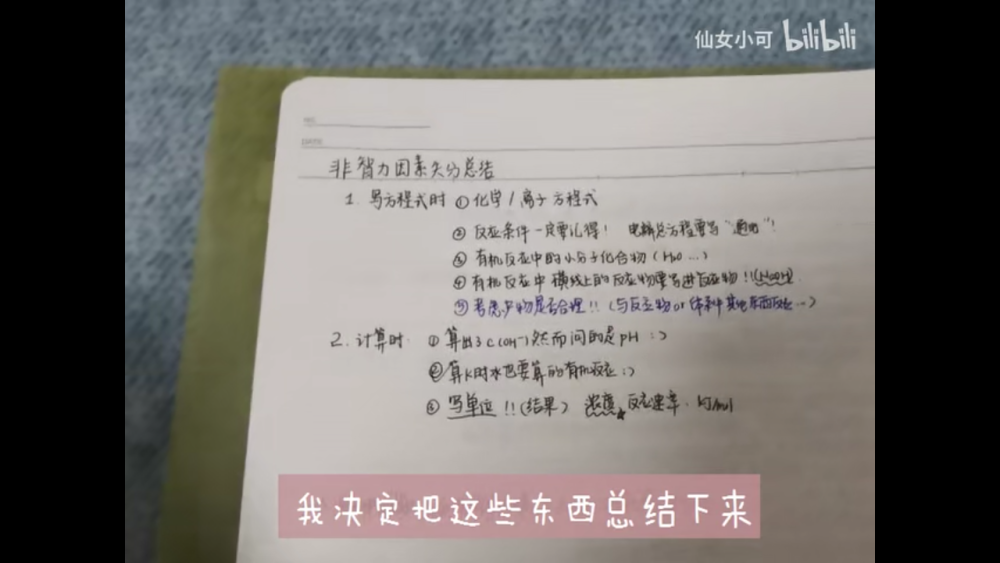 仙女小可 bilibili
NO.
DATE
非智力因素失分总结
1. 写方程式时 ①化学/离子方程式
②反应条件一定要记得! 电解总方程要写"通电"!
③有机反应中的小分子化合物(H₂O...)
④有机反应中横线上的反应物要写进反应物!!(NaOH)
⑤考虑产物是否合理!!(与反应物or体系中其他东西反应...)
2. 计算时: ①算出了c(OH⁻)然而问的是pH :)
②算K时水也要算的有机反应:)
③写单位!!(结果) 浓度 反应速率. kJ/mol
我决定把这些东西总结下来